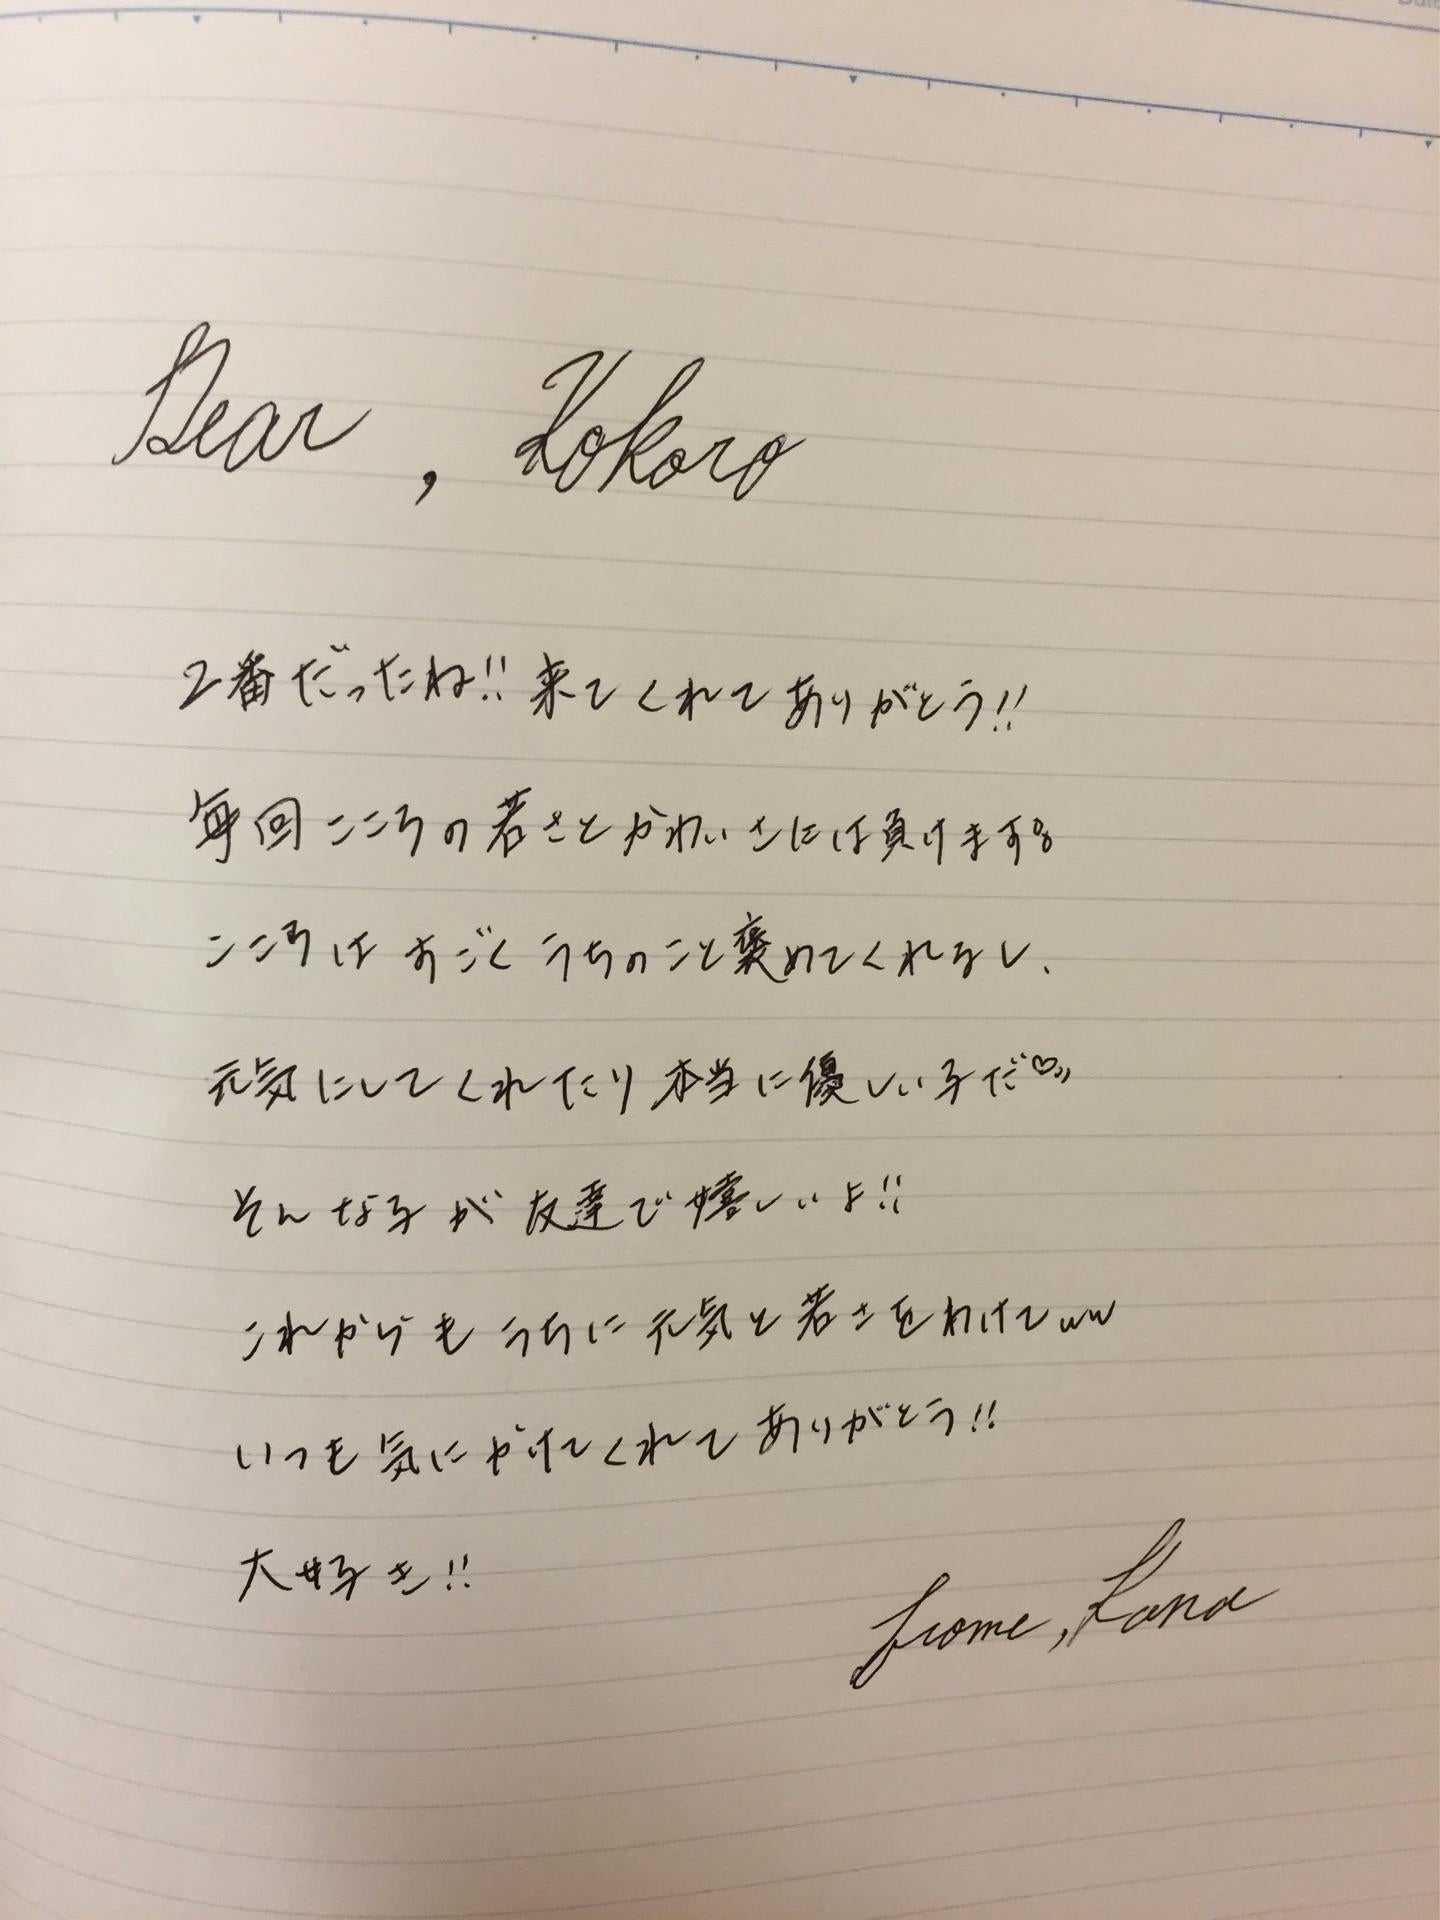 Dear, Kokoro
2番だったね!!来てくれてありがとう!!
毎回こころの若さとかわいさには負けます。
こころはすごくうちのこと褒めてくれるし、
元気にしてくれたり本当に優しい子だ♡
そんな子が友達で嬉しいよ!!
これからもうちに元気と若さをわけてww
いつも気にかけてくれてありがとう!!
大好き!!
frome, Kana